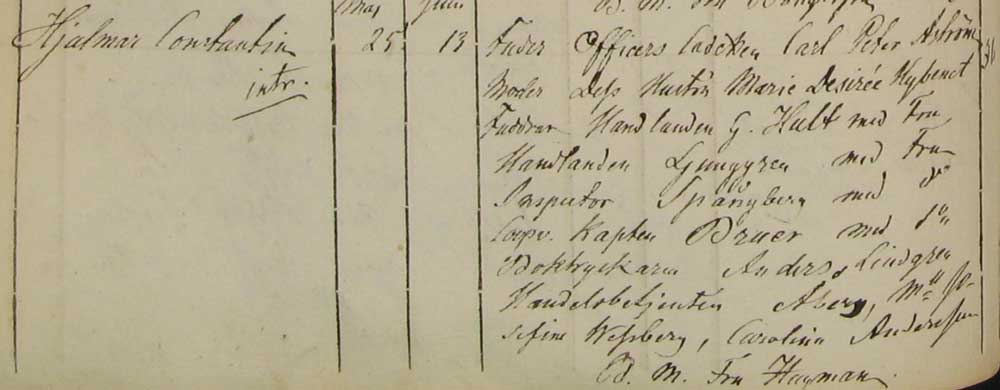 Maj Juni
Hjalmar Constantin 25. 13 Fader Officers Cadetten Carl Peter Aström
intr. Moder Dess Hustru Marie Desirée Nybenet
Faddrar Handlanden G. Hult med Fru
Handlanden Ljunggren med Fru
Inspector Spångberg med do
Coopv. Kapten Bruer med do
Boktryckaren Anders Lindgren
Handelsbetjenten Åberg, Mll Jo-
sefine Wessberg, Carolina Andersson
Gd. M. Fru Hagman.